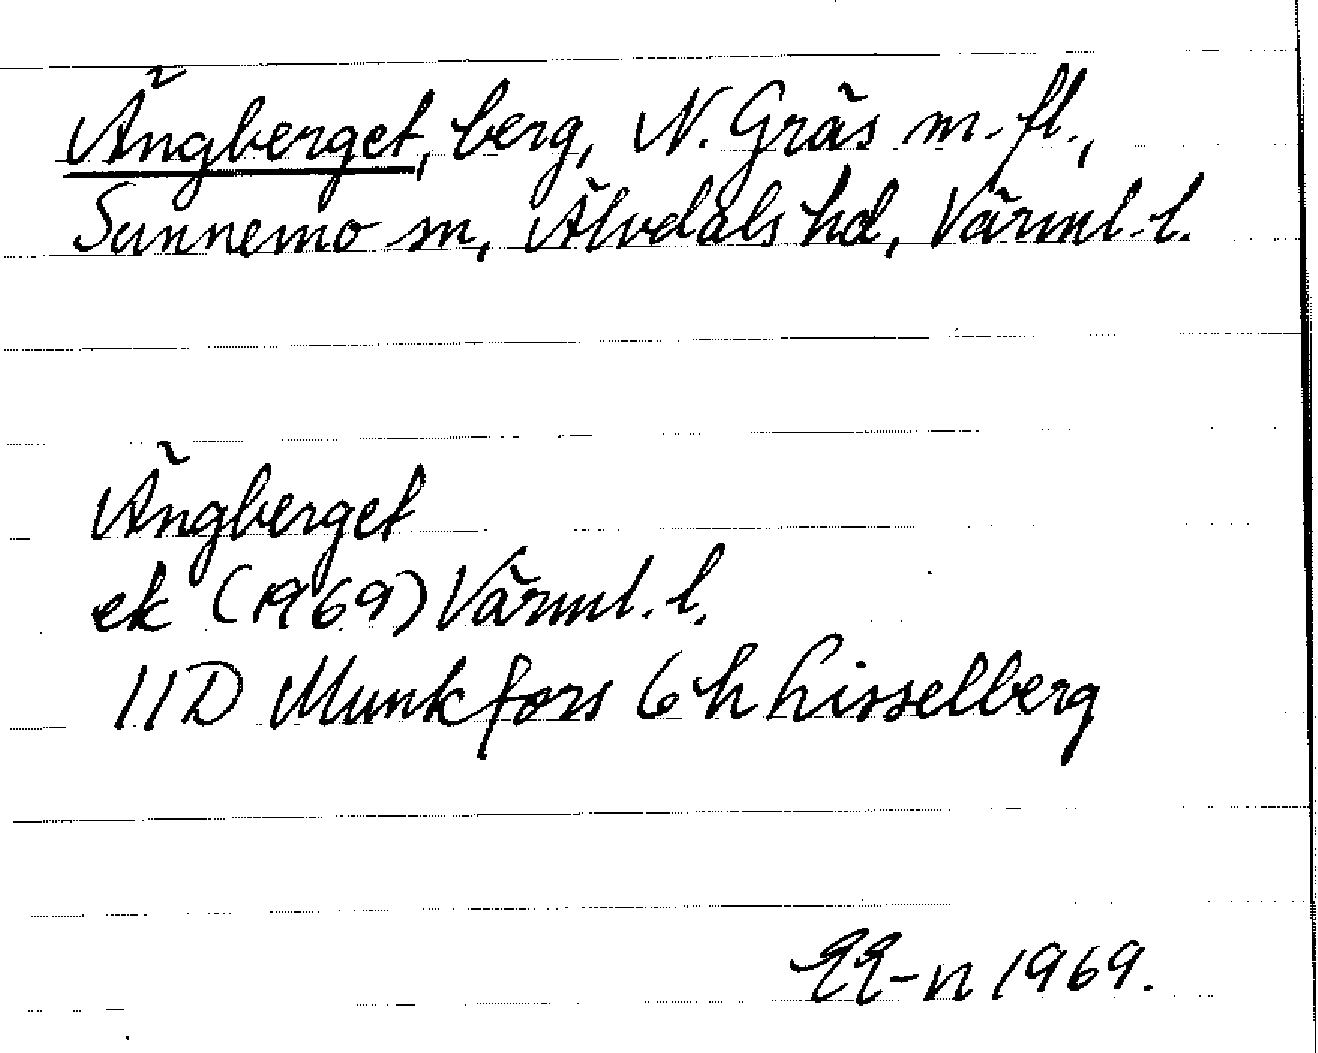 Ängberget, berg, N. Gräs m. fl.,
Sunnemo sn, Älvdals hd, Värml. l.
Ängberget
ek (1969) Värml. l.
11D Munkfors 6 h Lisselberg
EE-n 1969.